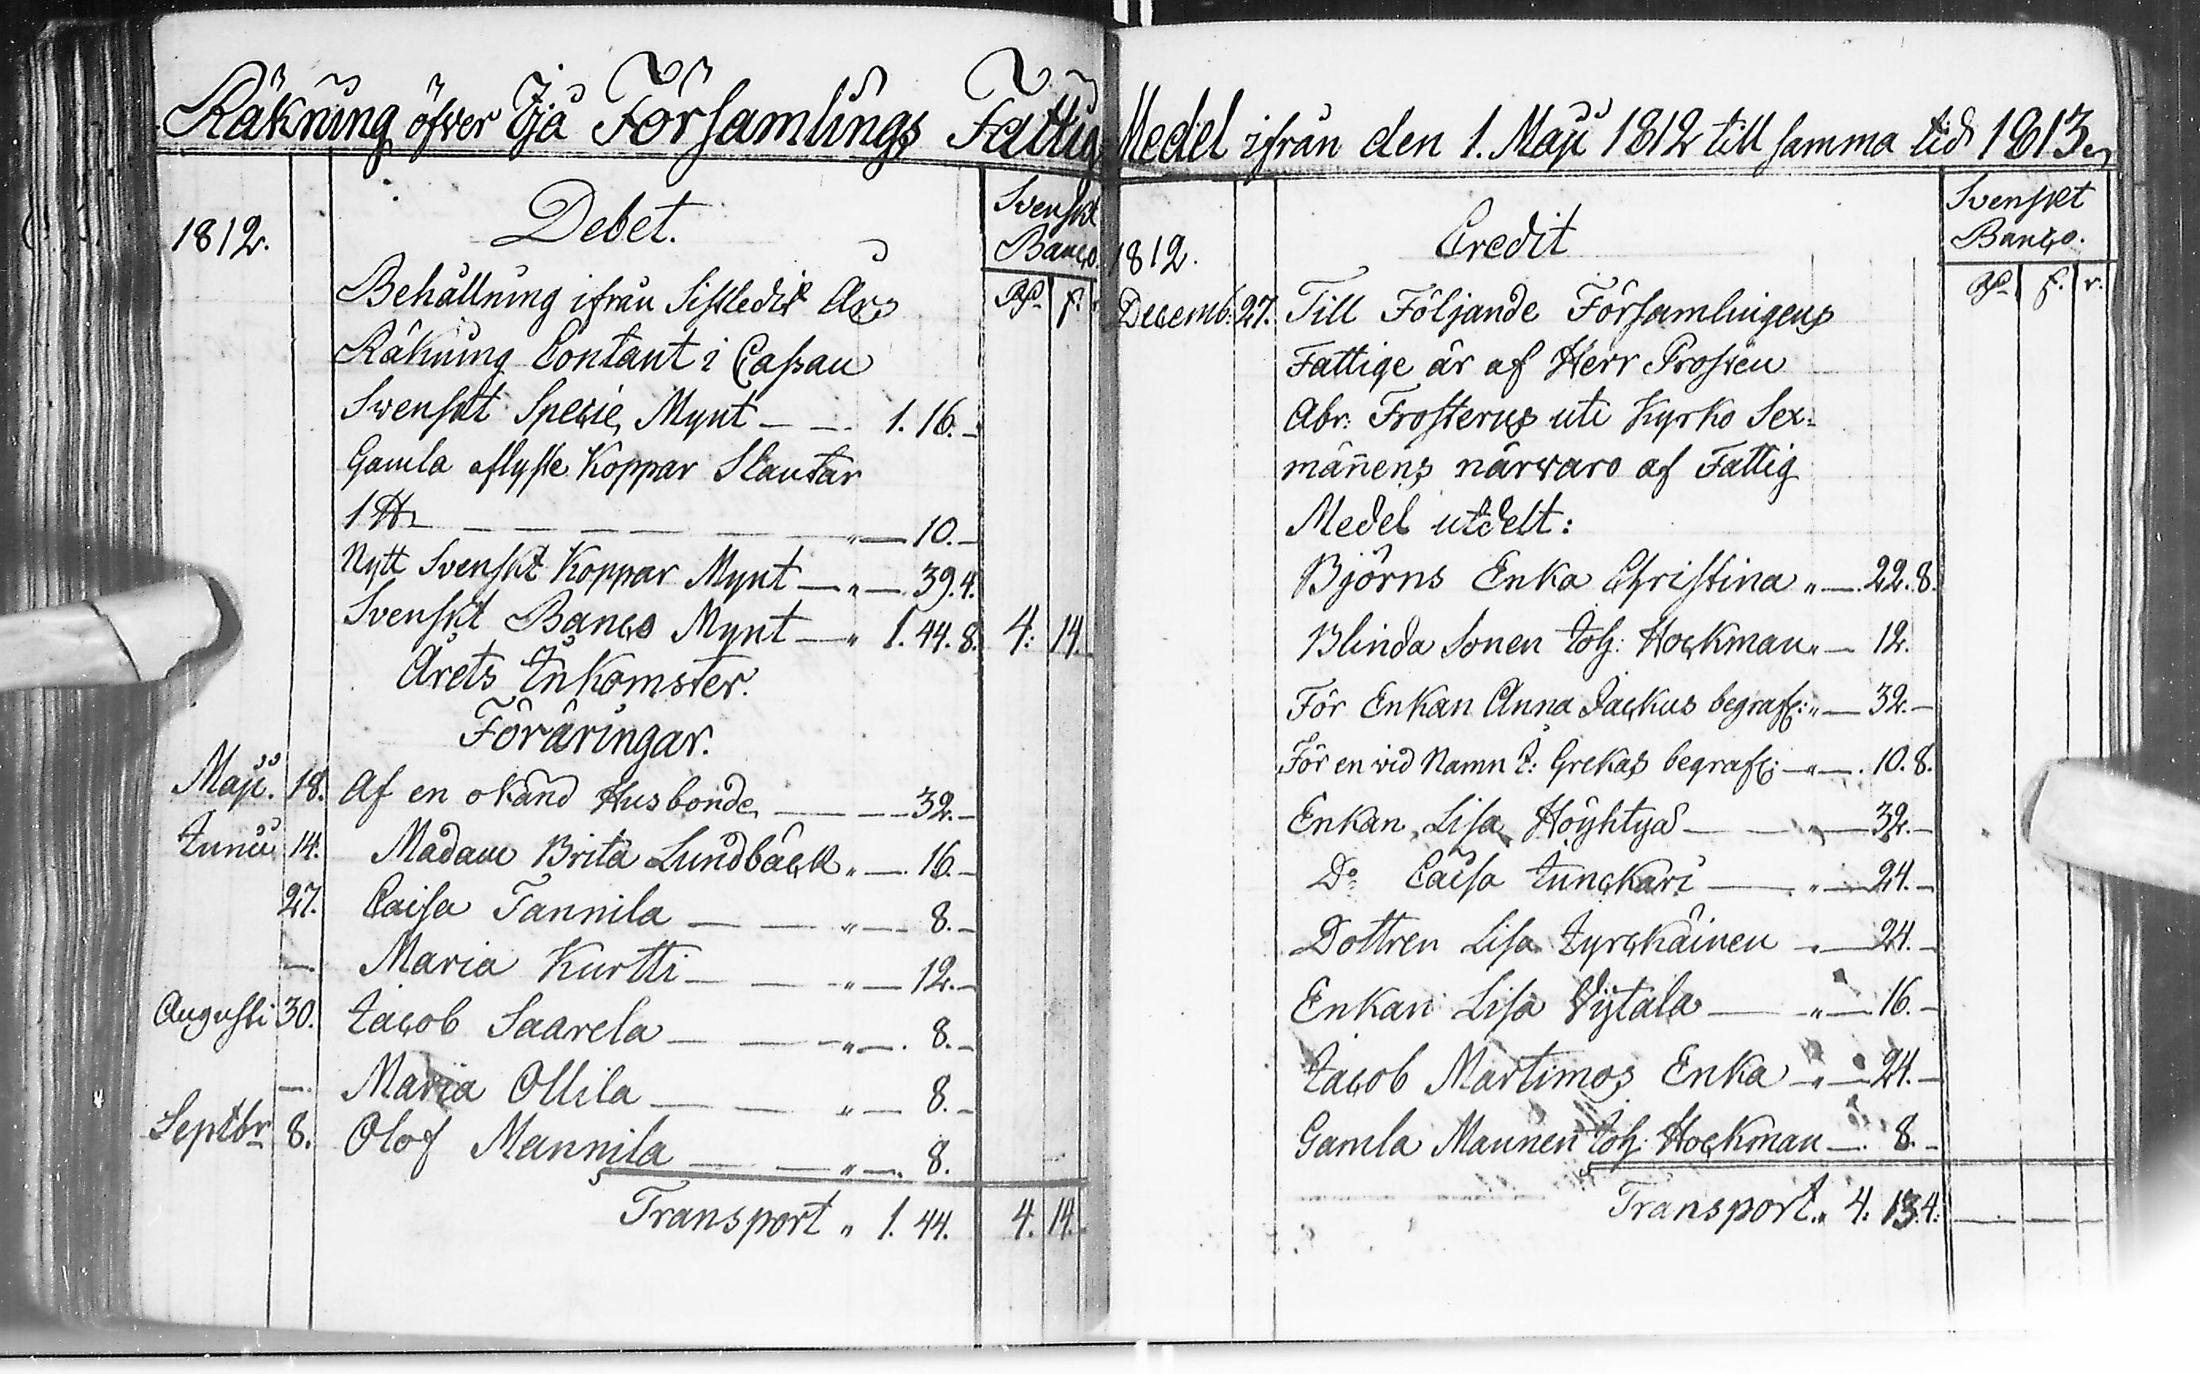 Räkning öfver Ijå Församlings Fattig Medel ifrån den 1. Maji 1812 till samma tid 1813.
1812. Debet. Svenskt
Banco.
Behållning ifrån Sistledit Års Rd. ß.
Räkning Contant i Cassan
Svenskt Specie Mynt — — 1. 16. —
Gamla aflyste Koppar Slantar
1 — — — — „ — 10. —
Nytt Svenskt Koppar Mynt — „ — 39. 4.
Svenskt Banco Mynt — „ 1. 44. 8. 4: 14.
Årets Inkomster.
Föräringar.
Maji. 18. Af en okänd Husbonde — — 32. —
Junii 14. Madam Brita Lundbäck „ — 16. —
27. Caisa Tannila — — „ — 8. —
— Maria Kurtti — — „ — 12. —
Augusti 30. Jacob Saarela — — „ — 8. —
— Maria Ollila — — „ — 8. —
Septbr 8. Olof Mannila — — „ — 8.
Transport „ 1. 44. 4. 14.
1812. Credit Svenskt
Banco.
Rd. ß. r.
Decemb: 27. Till Följande Församlingens
Fattige är af Herr Prosten
Abr: Frosterus uti Kyrko Sex=
männens närvaro af Fattig
Medel utdelt:
Björns Enka Christina „ — 22. 8.
Blinda Sonen Joh: Hockman „ — 12.
För Enkan Anna Jackus begrafn: „ — 32. —
För en vid Namn J: Grekas begrafn: — „ — 10. 8.
Enkan Lisa Höyhtyä — — „ — 32. —
Do Caisa Junckari — „ — 24. —
Dottren Lisa Jyrckäinen „ — 24. —
Enkan Lisa Vijtala — „ — 16. —
Jacob Martimos Enka — „ — 24. —
Gamla Mannen Joh: Hockman — 8. —
Transport „ 4. 13. 4. — — —